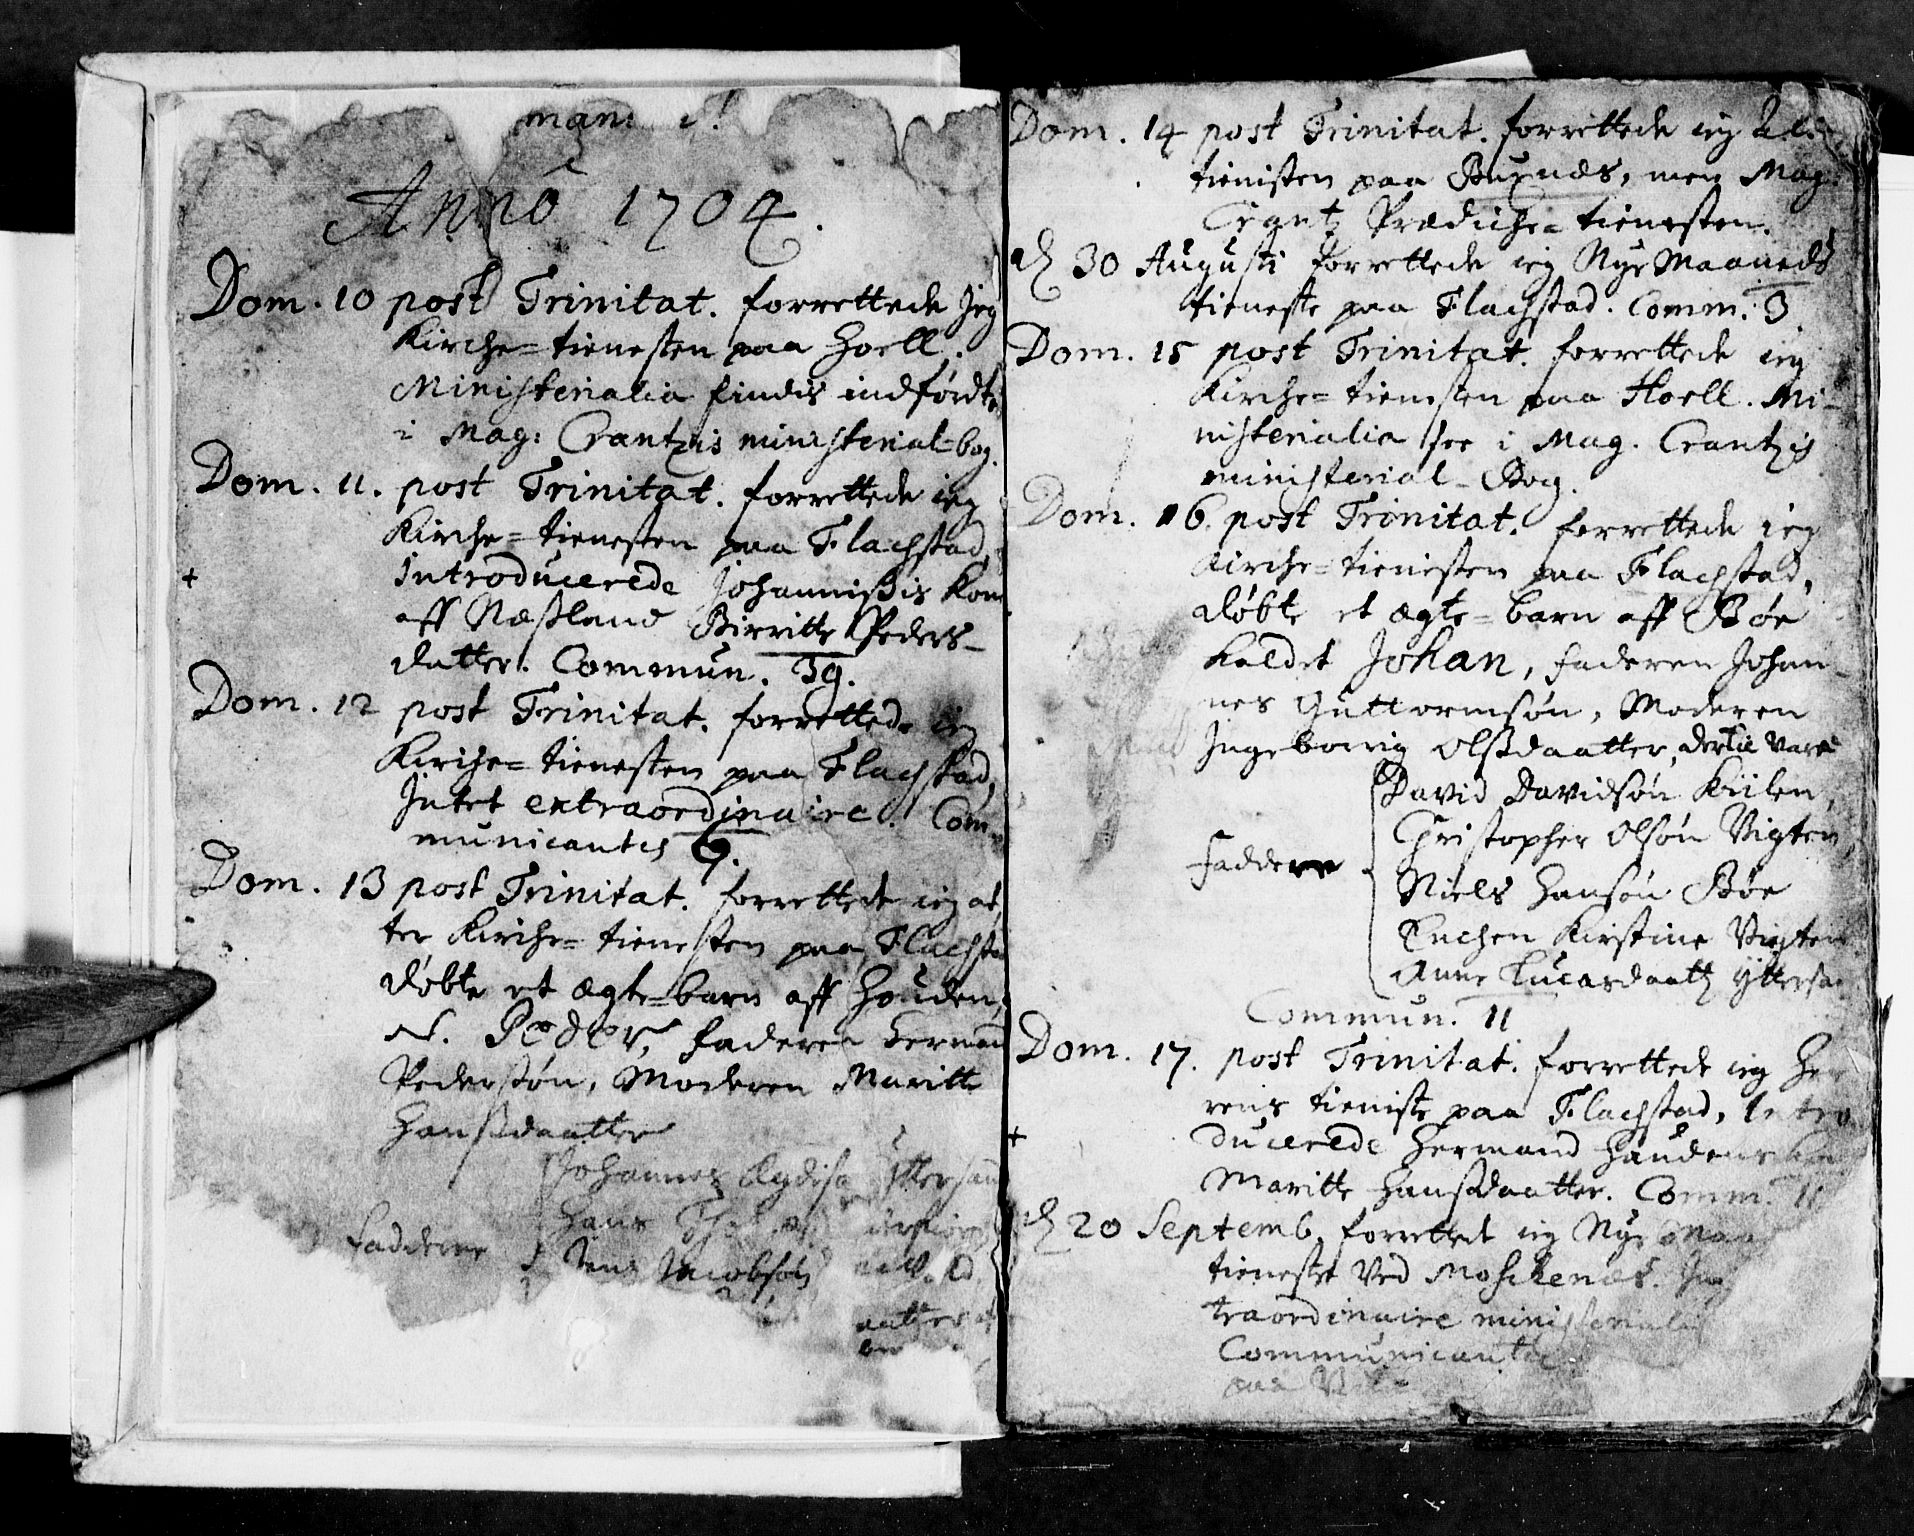 Anno 1704.
Dom. 10 post Trinitat. forrettede Jeg
Kirche=tienesten paa Hoell.
Ministerialia findis indførdte
i Mag: Crantzis ministerial=bog.
Dom. 11. post Trinitat. forrettede ieg
Kirche=tienesten paa Flachstad,
introducerede Johannißis Kone
aff Næßland Birritte Peders-
datter. Commun. 39.
Dom. 12 post Trinitat. forrettede ieg
Kirche=tienesten paa Flachstad,
Intet extraordinaire. Com-
municantes 9.
Dom. 13 post Trinitat. forrettede ieg at
ter Kirche=tienesten paa Flachsta
døbte et ægte=barn aff Houden,
N. Peder, faderen Herman
Pederßøn, Moderen Maritte
Hansdaatter
Johannes
Faddere Hans
Jens Jacobsøn
Dom. 14 post Trinitat. forrettede ieg
tienisten paa Buxnæs, men Mag:
Crantz Prædiche=tienesten.
d 30 Augusti forrettede ieg Nye Maaneds
tieneste paa Flachstad. Comm: 3
Dom. 15 post Trinitat. forrettede ieg
Kirche=tienesten paa Hoell. Mi-
nisterialia see i Mag. Crantzis
ministerial-Bog.
Dom. 16. post Trinitat. forrettede ieg
Kirche=tienisten paa Flachstad,
døbte et ægte=barn aff Bøe
kaldet Johan, faderen Johan-
nes Guttormsøn, Moderen
Ingeborrig Olßdaatter, dertil vare
David Davidsøn Kiilen,
Christopher Olsøn Vigten,
Faddere Niels Hansøn Bøe
Kirstine Vigten
Anne Lucasdaatt
Commun. 11
Dom. 17. post Trinitat. forrettede ieg Her
rens tieniste paa Flachstad, Intro
ducerede Hermand Haudens
Maritte Hansdaatter. Comm. 11
d 20 Septemb. forrettede ieg Nye Maa
tieneste Ved Moschenæs.
traordinaire ministerialia
Communicantes
paa